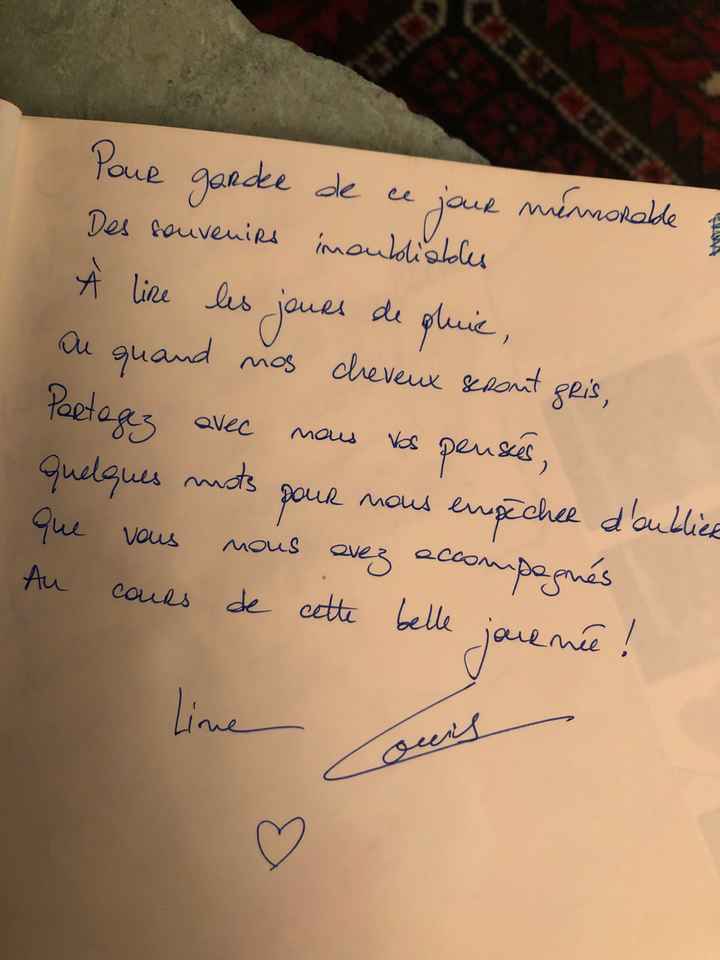 Pour garder de ce jour mémorable
Des souvenirs inoubliables
À lire les jours de pluie,
Ou quand nos cheveux seront gris,
Partagez avec nous vos pensées,
Quelques mots pour nous empêcher d'oublier
Que vous nous avez accompagnés
Au cours de cette belle journée !
Line Louis